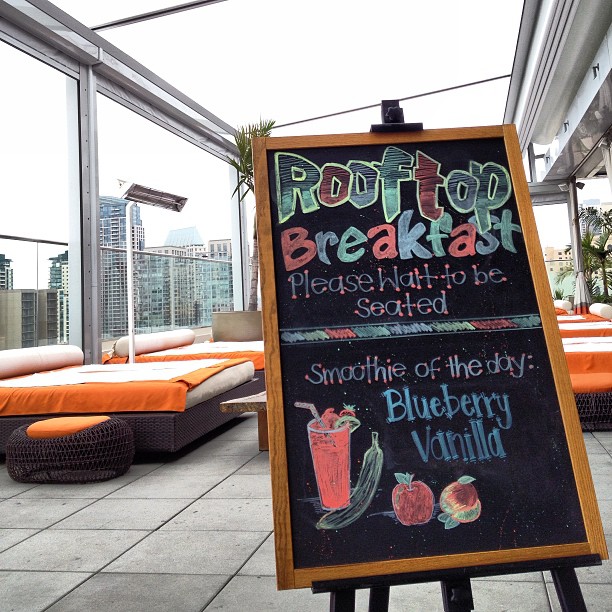 Rooftop
Breakfast
Please Wait to be
seated
Smoothie of the day:
Blueberry
Vanilla